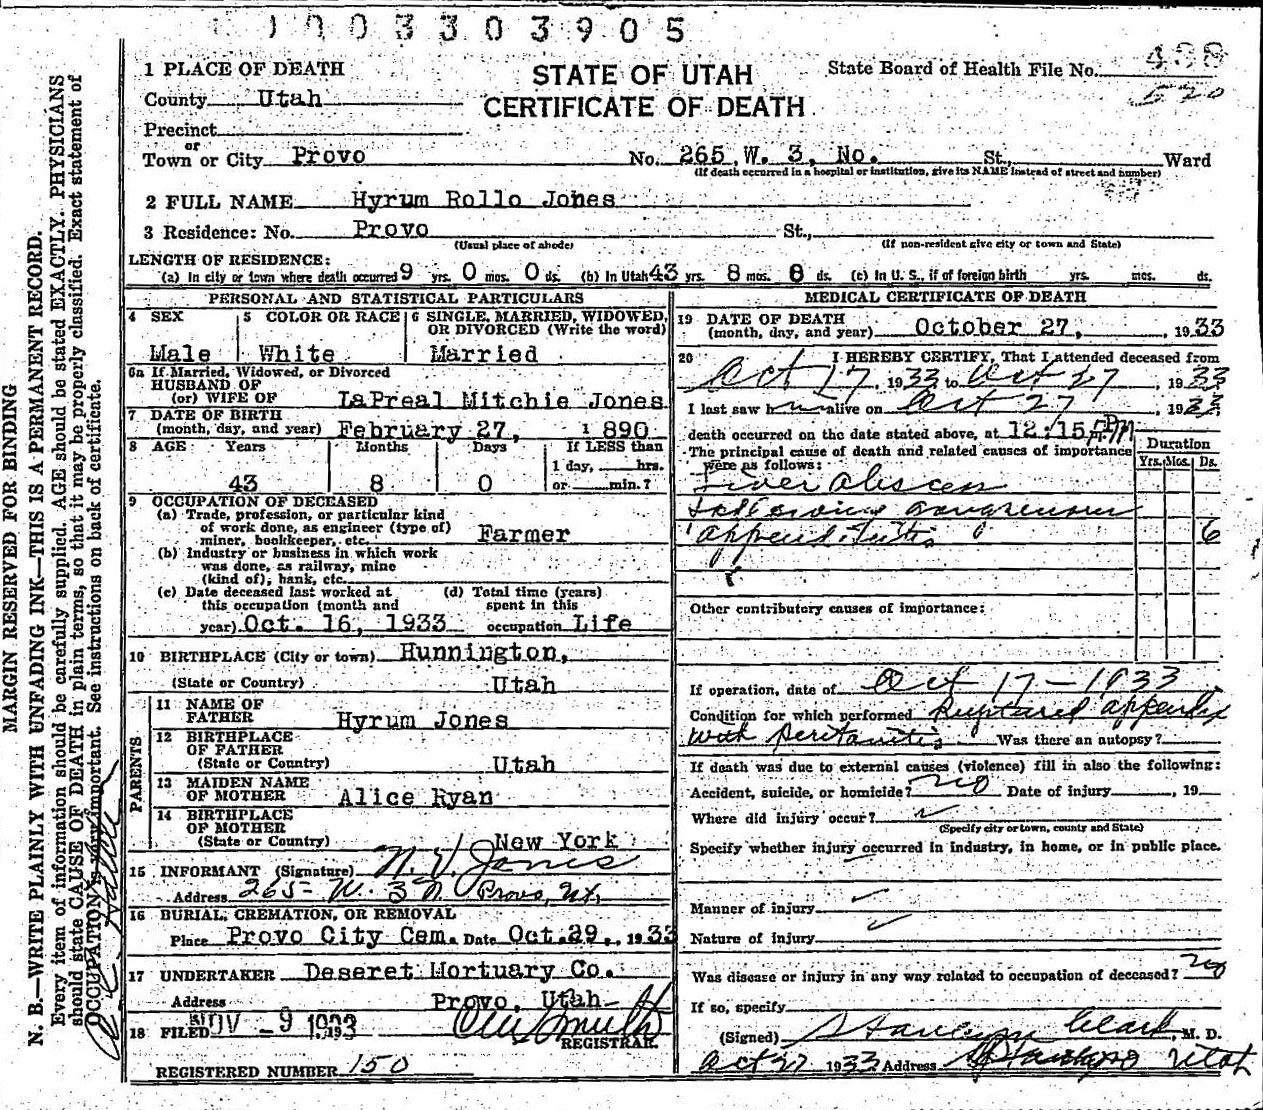 1003303905
1 PLACE OF DEATH
STATE OF UTAH
CERTIFICATE OF DEATH
State Board of Health File No. 498
570
County Utah
Precinct
or
Town or City Provo No. 265 W. 3, No. St., Ward
(If death occurred in a hospital or institution, give its NAME instead of street and number)
2 FULL NAME Hyrum Rollo Jones
3 Residence: No. Provo St.,
(Usual place of abode) (If non-resident give city or town and State)
LENGTH OF RESIDENCE:
(a) In city or town where death occurred 9 yrs. 0 mos. 0 ds. (b) In Utah 43 yrs. 8 mos. 8 ds. (c) In U. S., if of foreign birth yrs. mos. ds.
PERSONAL AND STATISTICAL PARTICULARS
4 SEX
Male
5 COLOR OR RACE
White
6 SINGLE, MARRIED, WIDOWED,
OR DIVORCED (Write the word)
Married
6a If Married, Widowed, or Divorced
HUSBAND OF
(or) WIFE OF LaPreal Mitchie Jones
7 DATE OF BIRTH
(month, day, and year) February 27, 1890
8 AGE Years Months Days If LESS than
1 day, hrs.
43 8 0 or min.?
9 OCCUPATION OF DECEASED
(a) Trade, profession, or particular kind
of work done, as engineer (type of)
miner, bookkeeper, etc. Farmer
(b) Industry or business in which work
was done, as railway, mine
(kind of), bank, etc.
(c) Date deceased last worked at
this occupation (month and
year) Oct. 16, 1933
(d) Total time (years)
spent in this
occupation Life
10 BIRTHPLACE (City or town) Hunnington,
(State or Country) Utah
PARENTS
11 NAME OF
FATHER Hyrum Jones
12 BIRTHPLACE
OF FATHER
(State or Country) Utah
13 MAIDEN NAME
OF MOTHER Alice Ryan
14 BIRTHPLACE
OF MOTHER
(State or Country) New York
15 INFORMANT (Signature) N. V. Jones
Address 265 W. 3 N. Provo, Ut.
16 BURIAL, CREMATION, OR REMOVAL
Place Provo City Cem. Date Oct. 29, 1933
17 UNDERTAKER Deseret Mortuary Co.
Address Provo, Utah
18 FILED NOV - 9 1933
REGISTRAR.
REGISTERED NUMBER 150
MEDICAL CERTIFICATE OF DEATH
19 DATE OF DEATH
(month, day, and year) October 27, 1933
20 I HEREBY CERTIFY, That I attended deceased from
Oct 17, 1933 to Oct 27, 1933
I last saw him alive on Oct 27, 1933
death occurred on the date stated above, at 12:15 PM
The principal cause of death and related causes of importance
were as follows:
Duration
Yrs. Mos. Ds.
Liver Abscess
following gangrenous
appendicitis 6
Other contributory causes of importance:
If operation, date of Oct 17 - 1933
Condition for which performed Ruptured appendix
with peritonitis Was there an autopsy?
If death was due to external causes (violence) fill in also the following:
Accident, suicide, or homicide? no Date of injury , 19
Where did injury occur?
(Specify city or town, county and State)
Specify whether injury occurred in industry, in home, or in public place.
Manner of injury
Nature of injury
Was disease or injury in any way related to occupation of deceased? no
If so, specify
(Signed) Stanley Clark, M. D.
Oct 27 1933 Address Utah
MARGIN RESERVED FOR BINDING
N. B.—WRITE PLAINLY WITH UNFADING INK—THIS IS A PERMANENT RECORD.
Every item of information should be carefully supplied. AGE should be stated EXACTLY. PHYSICIANS
should state CAUSE OF DEATH in plain terms, so that it may be properly classified. Exact statement of
OCCUPATION is very important. See instructions on back of certificate.